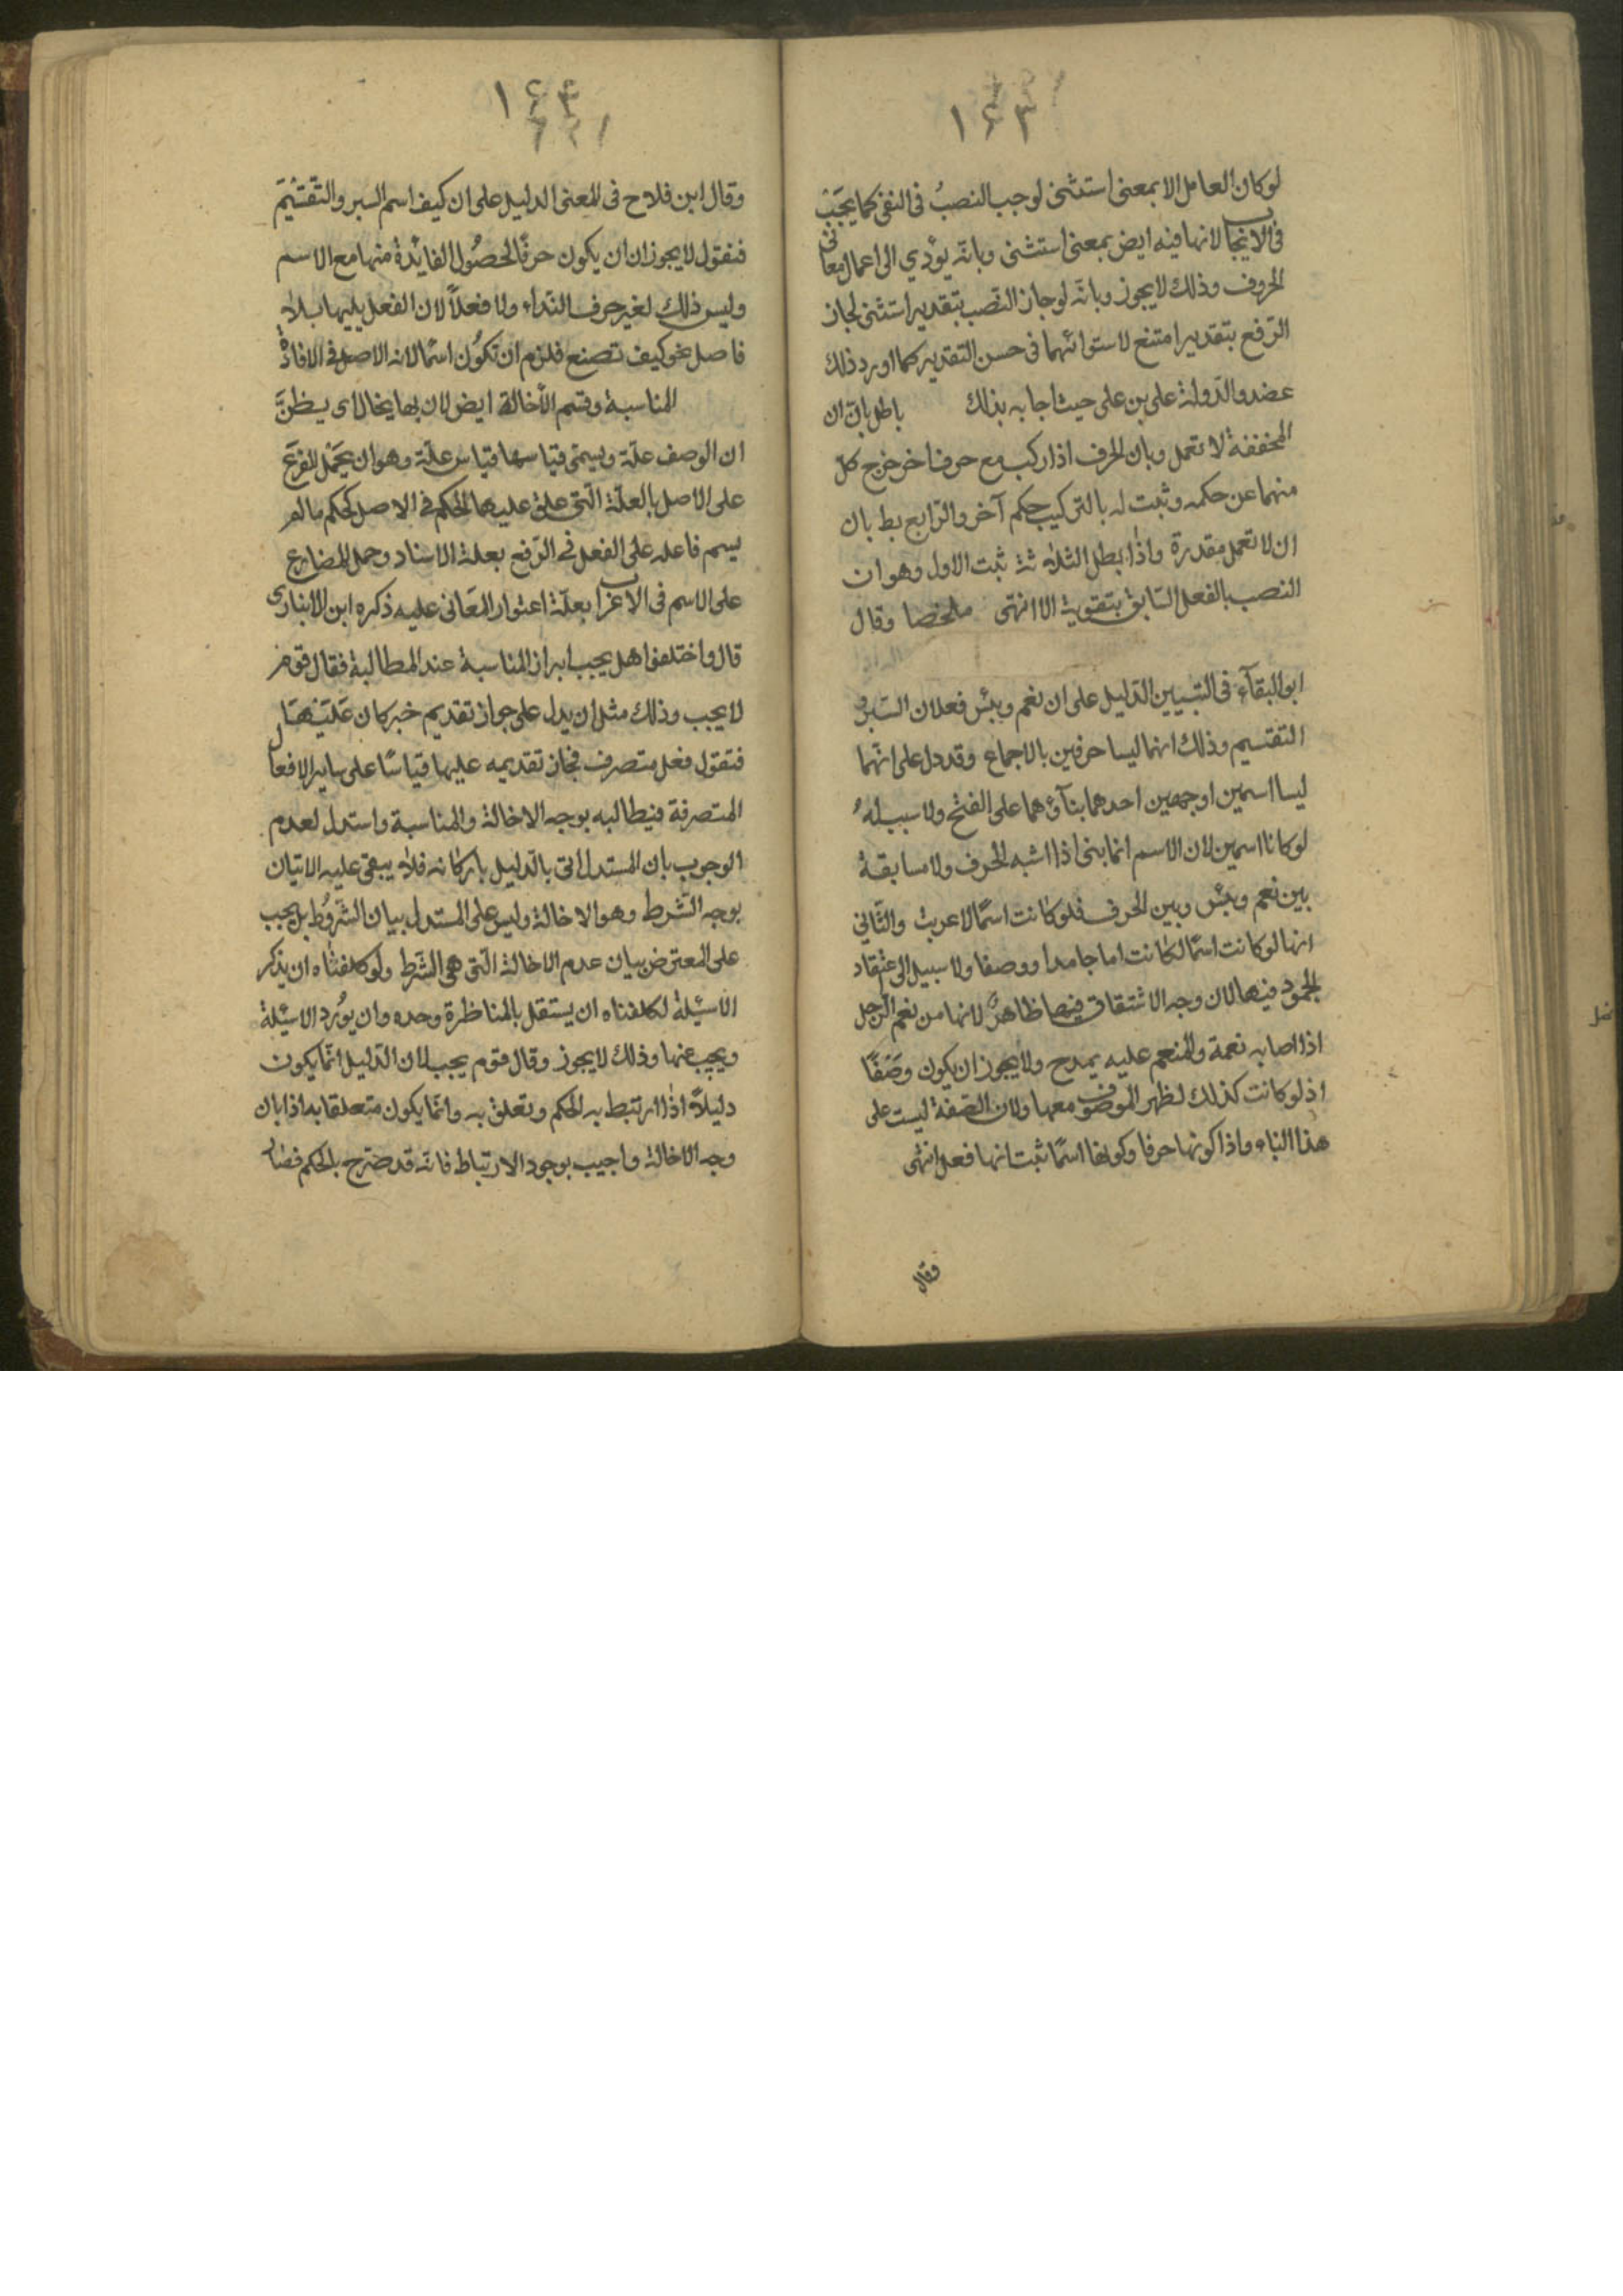 ١٦٣
لو كان العامل الا بمعنى استثنى لوجب النصبُ فى النفى كما يجَبُ
فى الايجاب لانها فيه ايض بمعنى استثنى وبانّه يؤدي الى اعمال معانى
الحروف وذلك لا يجوز وبانّه لو جاز النّصب بتقدير استثنى لجاز
الرّفع بتقدير امتنع لاستوائهما فى حسن التقدير كما اورد ذلك
عضد والدّولة على بن على حيث اجابه بذلك باطل بانّ ان
المخففة لا تعمل وبان الحرف اذا ركب مع حرف اخر خرج كلّ
منهما عن حكمه وثبت له بالتركيب حكم آخر والرّابع بط بان
ان لا تعمل مقدرة واذا بطل الثلاثة ثبت الاول وهو ان
النصب بالفعل السّابق بتقوية الا انتهى ملخصا وقال
ابو البقآء فى التبيين الدّليل على ان نعم وبئس فعلان السّبر و
التقسيم وذلك انهما ليسا حرفين بالاجماع وقد دل على انّهما
ليسا اسمين اوجهين احدهما بنآؤهما على الفتح ولا سبب لهُ
لو كانا اسمين لان الاسم انما بنى اذا اشبه الحرف ولا مسابقة
بين نعم وبئس وبين الحرف فلو كانت اسمًا لاعربت والثّانى
انها لو كانت اسمًا لكانت اما جامدا ووصفا ولا سبيل الى اعتقاد
الجمود فيها لان وجه الاشتقاق فيها ظاهرٌ لانها من نعم الرّجل
اذا اصابه نعمة والمنعم عليه يمدح ولا يجوز ان يكون وصَفًا
اذ لو كانت كذلك لظهر الموصُوف معها ولان الصّفة ليست على
هذا البناء واذا كونها حرفا وكونها اسمًا ثبت انها فعل انتهى
وقال
١٦٤
وقال ابن فلاح فى المعنى الدليل على ان كيف اسم السبر والتّقسْيَم
فنقول لا يجوز ان ان يكون حرفًا لحصُول الفائدة منها مع الاسم
وليس ذلك لغير حرف النّداء ولا فعلاً لان الفعل يليها بلا
فاصل نحو كيف تصنع فلزم ان تكوُن اسمًا لانه الاصل فى الافادة
المناسبة وقسم الأخالة ايض لان بها يخال اى يظنّ
ان الوصف علّة ويسمّى قياسها قياس علّة وهو ان يحمَل الفرع
على الاصل بالعلّة الّتى علق عليها الحكم فى الاصل كحكم ما لم
يسم فاعله على الفعل فى الرّفع بعلة الاسناد وحمل المضارع
على الاسم فى الاعراب بعلّة اعتوار المَعانى عليه ذكره ابن الانبارى
قال واختلفوا هل يجب ابراز المناسبة عند المطالبة فقال قوم
لا يجب وذلك مثل ان يدل على جواز تقديم خبر كان عَليَهَا
فتقول فعل متصرف فجاز تقديمه عليها قياسًا على ساير الافعال
المتصرفة فيطالبه بوجه الاخالة والمناسبة واستدل لعدم
الوجوب بان المستدل اتى بالدّليل باركانه فلا يبقى عليه الاتيان
بوجه الشّرط وهو الاخالة وليس على المستدل بيان الشّروُط بل يجب
على المعترض بيان عدم الاخالة الّتى هى الشّرط ولو كلفناه ان يذكر
الاسئلة لكلفناه ان يستقل بالمناظرة وحده وان يوُرد الاسئلة
ويجيب عنها وذلك لا يجوز وقال قوم يجب لان الدّليل انّما يكون
دليلاً اذا ارتبط به الحكم وتعلق به وانّما يكون متعلقا به اذا بان
وجه الاخالة واجيب بوجود الارتباط فانّه قد صّرح بالحكم فصار